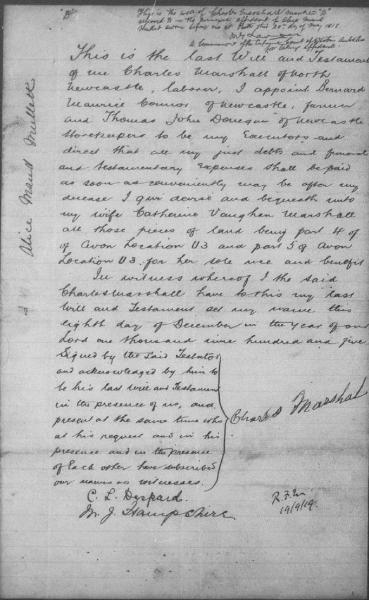 "B"
This is the will of Charles Marshall marked "B"
referred to in the annexed affidavit of Alice Maud
Mullett sworn before me at Perth this 20th day of May 191
A Commissioner of the Supreme Court of Western Australia
for taking affidavits
This is the last Will and Testament
of me Charles Marshall of North
Newcastle, labourer, I appoint Bernard
Maurice Connor, of Newcastle, farmer
and Thomas John Donegan of Newcastle
Storekeepers to be my Executors and
direct that all my just debts and funeral
and testamentary Expenses shall be paid
as soon as conveniently may be after my
decease I give devise and bequeath unto
my wife Catherine Vaughan Marshall
all those pieces of land being part 4 of
of Avon Location U3 and part 5 of Avon
Location U3 for her sole use and benefit
In witness whereof I the said
Charles Marshall have to this my last
Will and Testament set my name this
eighth day of December in the year of our
Lord one thousand nine hundred and five
Signed by the said Testator
and acknowledged by him to
be his last will and Testament
in the presence of us, and
present at the same time who
at his request and in his
presence and in the presence
of Each other have subscribed
our names as witnesses.
Charles Marshal
C. L. Deppard.
M. J. Hampshire
19/9/19.
Alice Maud Mullett